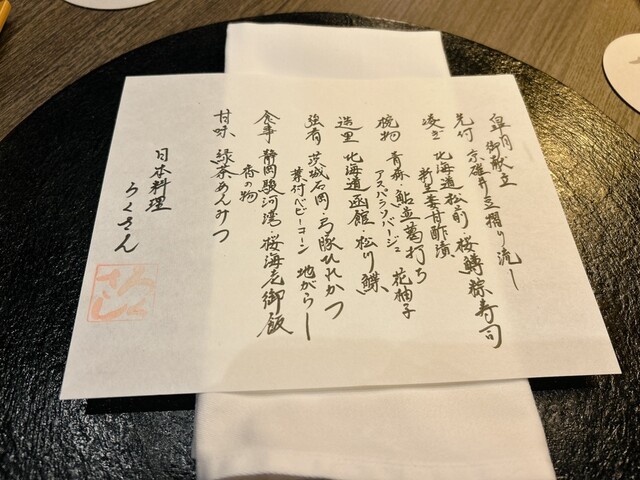 皐月 御献立
先付 京碓井豆摺り流し
凌ぎ 北海道松前・桜鱒粽寿司
新生姜甘酢漬
椀物 青森・鮎並葛打ち
アスパラソバージュ 花柚子
造里 北海道函館・松川鰈
強肴 茨城石岡・弓豚ひれかつ
葉付ベビーコーン 地がらし
食事 静岡駿河湾・桜海老御飯
香の物
甘味 緑茶あんみつ
日本料理
らくさん